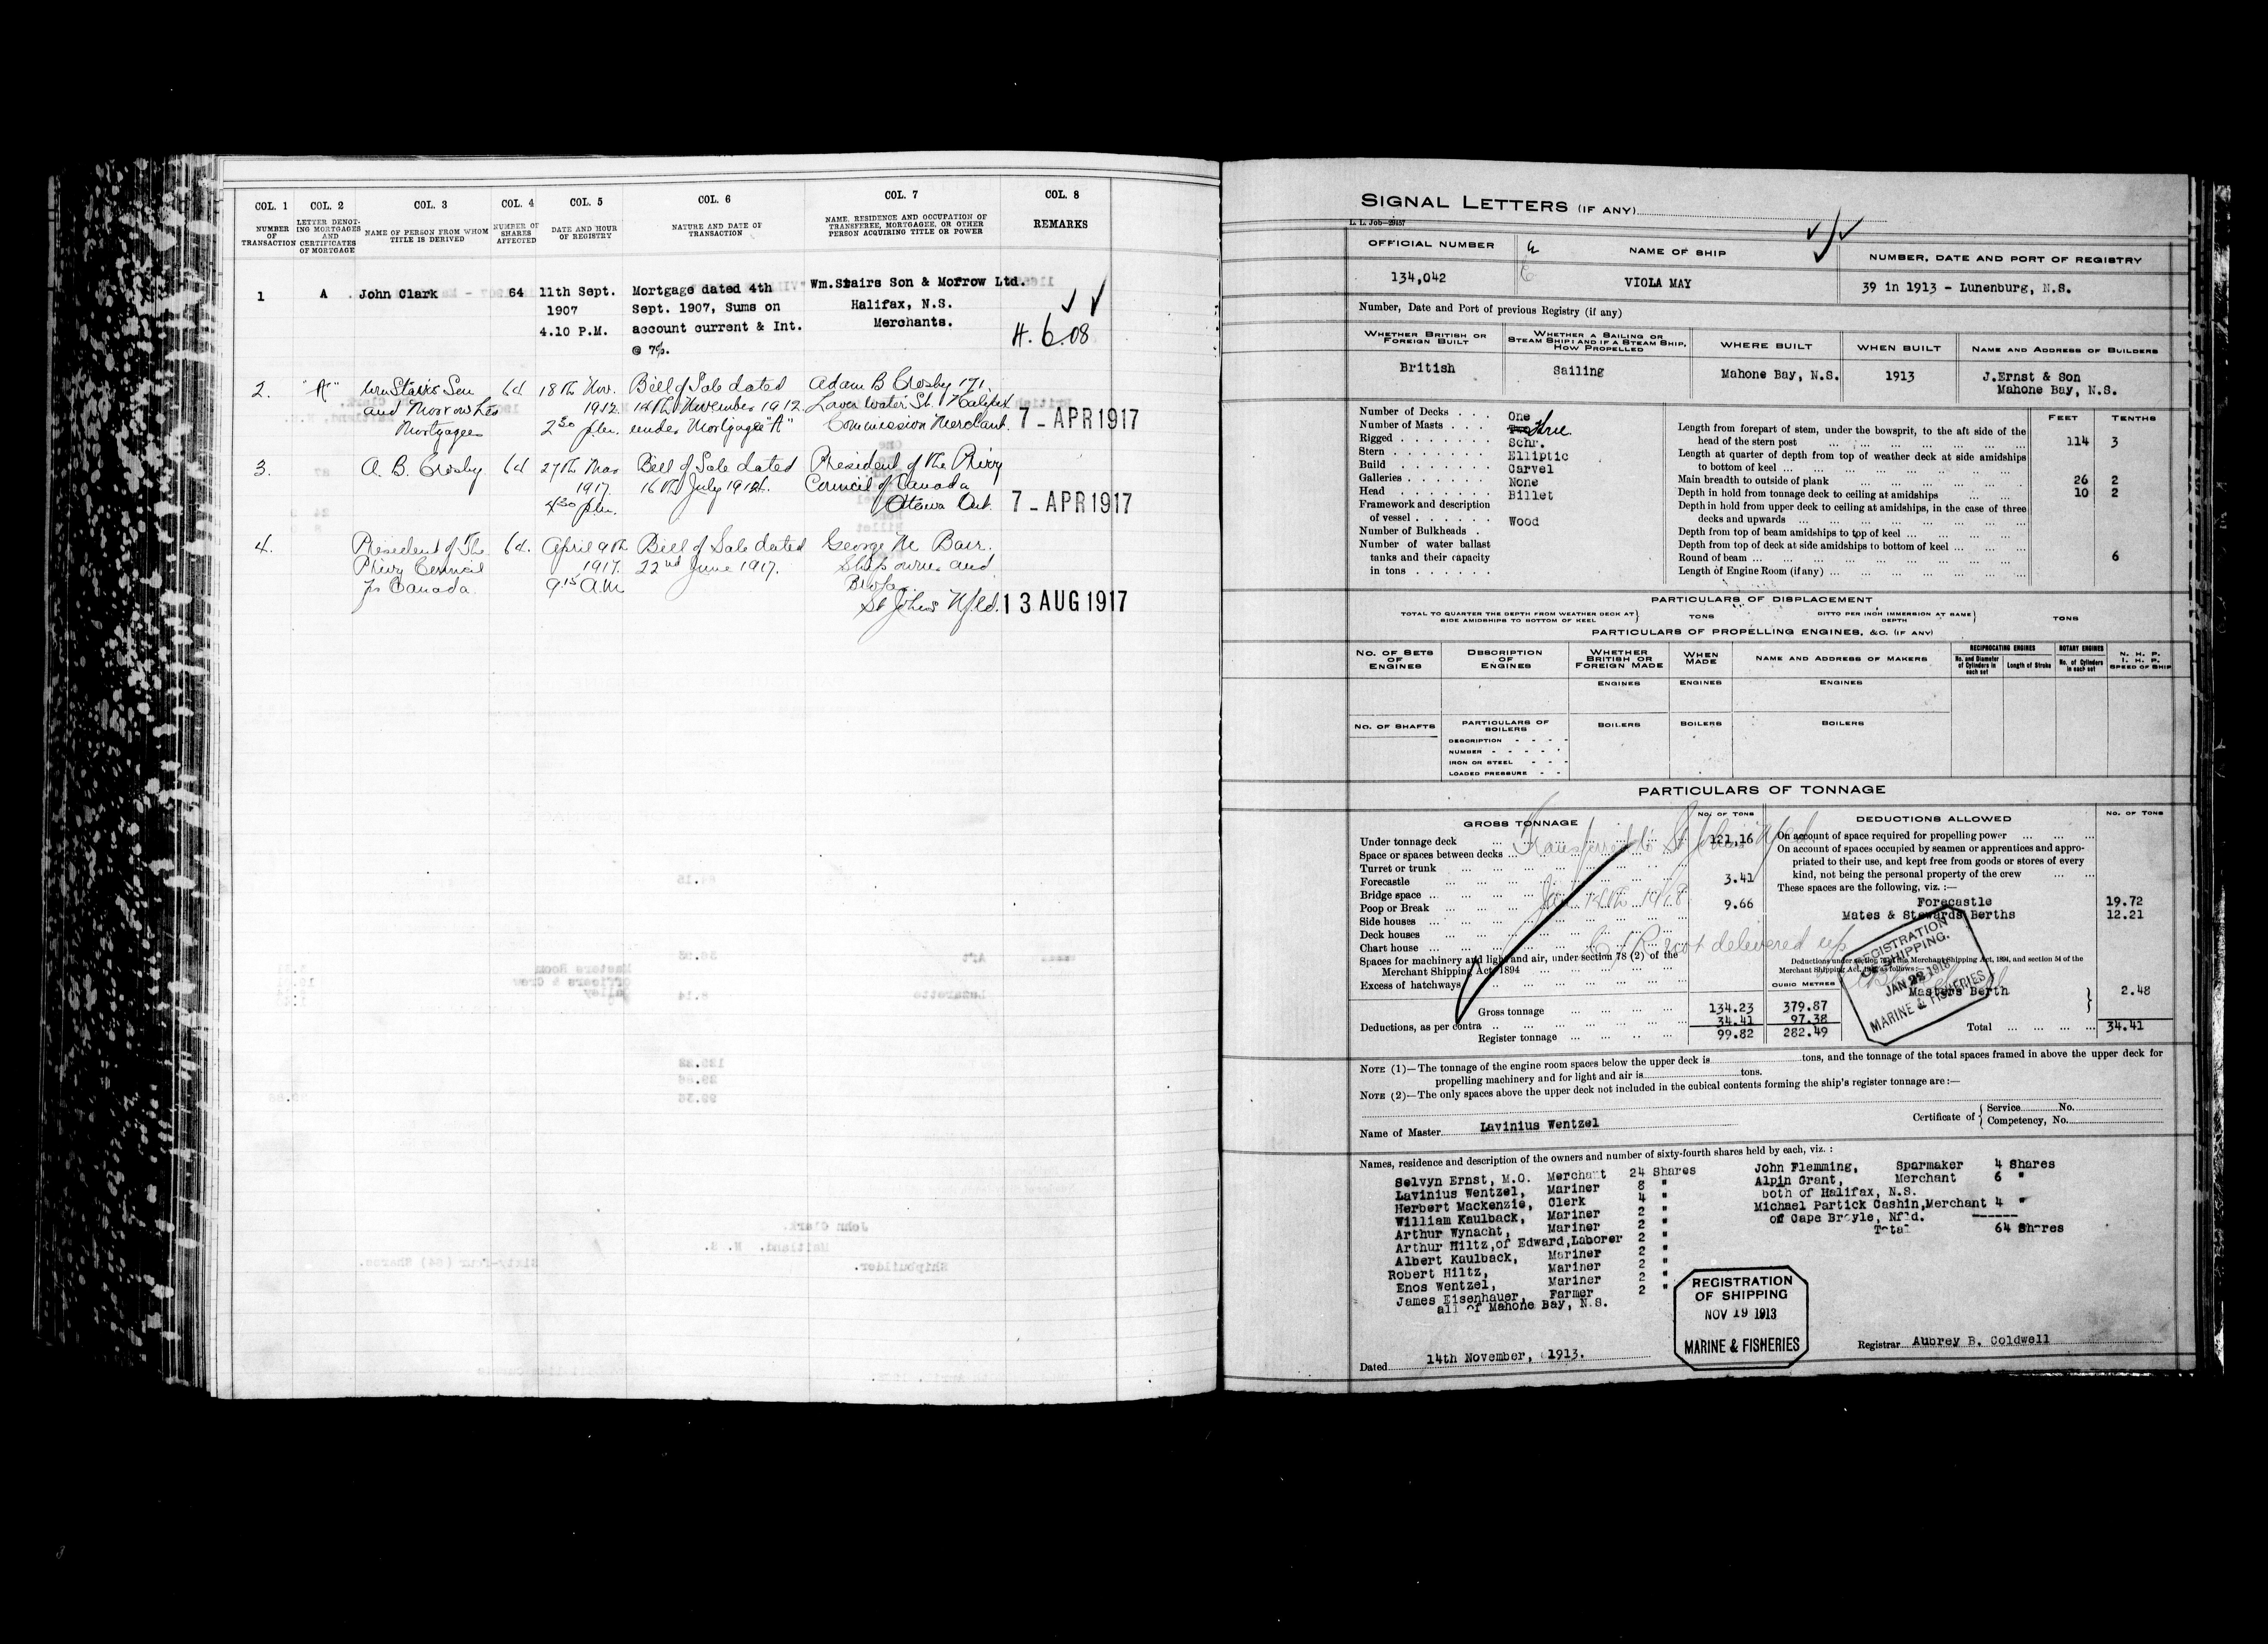 COL. 1 COL. 2 COL. 3 COL. 4 COL. 5 COL. 6 COL. 7 COL. 8
NUMBER OF TRANSACTION
LETTER DENOTING MORTGAGES AND CERTIFICATES OF MORTGAGE
NAME OF PERSON FROM WHOM TITLE IS DERIVED
NUMBER OF SHARES AFFECTED
DATE AND HOUR OF REGISTRY
NATURE AND DATE OF TRANSACTION
NAME, RESIDENCE AND OCCUPATION OF TRANSFEREE, MORTGAGEE, OR OTHER PERSON ACQUIRING TITLE OR POWER
REMARKS
1 A John Clark 64 11th Sept. Mortgage dated 4th Wm.Stairs Son & Morrow Ltd.
1907 Sept. 1907, Sums on Halifax, N.S.
4.10 P.M. account current & Int. Merchants. H. 6.08
@ 7%.
2. "A" Wm Stairs Son 64 18th Nov. Bill of Sale dated Adam B Crosby 171
and Morrow Ltd 1912. 14th November 1912 Lower Water St. Halifax
Mortgagees 2 30 p.m. under Mortgage "A" Commission Merchant. 7 - APR 1917
3. A. B. Crosby. 64 27th Mar Bill of Sale dated President of the Privy
1917. 16th July 191 Council of Canada
4 30 p.m. Ottawa Ont. 7 - APR 1917
4. President of The 64. April 9th Bill of Sale dated George M Barr.
Privy Council 1917. 22nd June 1917. Ship owner and
for Canada. 9 15 A.M
St Johns Nfld. 13 AUG 1917
SIGNAL LETTERS (IF ANY)
L. L. Job—29457
OFFICIAL NUMBER NAME OF SHIP NUMBER, DATE AND PORT OF REGISTRY
134,042 VIOLA MAY 39 in 1913 - Lunenburg, N.S.
Number, Date and Port of previous Registry (if any)
WHETHER BRITISH OR FOREIGN BUILT
WHETHER A SAILING OR STEAM SHIP: AND IF A STEAM SHIP, HOW PROPELLED
WHERE BUILT WHEN BUILT NAME AND ADDRESS OF BUILDERS
British Sailing Mahone Bay, N.S. 1913 J.Ernst & Son
Mahone Bay, N.S.
Number of Decks . . . One
Number of Masts . . . Two Three
Rigged . . . . . . . Schr.
Stern . . . . . . . Elliptic
Build . . . . . . . Carvel
Galleries . . . . . . None
Head . . . . . . . Billet
Framework and description
of vessel . . . . . . Wood
Number of Bulkheads .
Number of water ballast
tanks and their capacity
in tons . . . . . .
FEET TENTHS
Length from forepart of stem, under the bowsprit, to the aft side of the
head of the stern post ... 114 3
Length at quarter of depth from top of weather deck at side amidships
to bottom of keel ...
Main breadth to outside of plank ... 26 2
Depth in hold from tonnage deck to ceiling at amidships ... 10 2
Depth in hold from upper deck to ceiling at amidships, in the case of three
decks and upwards ...
Depth from top of beam amidships to top of keel ...
Depth from top of deck at side amidships to bottom of keel ...
Round of beam ... 6
Length of Engine Room (if any) ...
PARTICULARS OF DISPLACEMENT
TOTAL TO QUARTER THE DEPTH FROM WEATHER DECK AT SIDE AMIDSHIPS TO BOTTOM OF KEEL TONS DITTO PER INCH IMMERSION AT SAME DEPTH TONS
PARTICULARS OF PROPELLING ENGINES, &C. (IF ANY)
NO. OF SETS OF ENGINES
DESCRIPTION OF ENGINES
WHETHER BRITISH OR FOREIGN MADE
WHEN MADE
NAME AND ADDRESS OF MAKERS
RECIPROCATING ENGINES
No. and Diameter of Cylinders in each set
Length of Stroke
ROTARY ENGINES
No. of Cylinders in each set
N. H. P.
I. H. P.
SPEED OF SHIP
ENGINES ENGINES ENGINES
NO. OF SHAFTS PARTICULARS OF BOILERS BOILERS BOILERS BOILERS
DESCRIPTION - - - -
NUMBER - - - - - -
IRON OR STEEL - - -
LOADED PRESSURE - -
PARTICULARS OF TONNAGE
GROSS TONNAGE NO. OF TONS
Under tonnage deck ... 121,16
Space or spaces between decks ...
Turret or trunk ...
Forecastle ... 3.41
Bridge space ...
Poop or Break ... 9.66
Side houses ...
Deck houses ...
Chart house ...
Spaces for machinery and light and air, under section 78 (2) of the
Merchant Shipping Act, 1894 ...
Excess of hatchways ...
CUBIC METRES
Gross tonnage ... 134.23 379.87
Deductions, as per contra ... 34.41 97.38
Register tonnage ... 99.82 282.49
Transferred to St Johns Nfld.
Jan 14th 1918
C/R not delivered up
DEDUCTIONS ALLOWED NO. OF TONS
On account of space required for propelling power ...
On account of spaces occupied by seamen or apprentices and appro-
priated to their use, and kept free from goods or stores of every
kind, not being the personal property of the crew ...
These spaces are the following, viz. :—
Forecastle 19.72
Mates & Stewards Berths 12.21
Deductions under section 79 of the Merchant Shipping Act, 1894, and section 54 of the
Merchant Shipping Act, 1906, as follows:—
Masters Berth 2.48
Total ... 34.41
REGISTRATION
OF SHIPPING.
JAN 22 1918
MARINE & FISHERIES
NOTE (1)—The tonnage of the engine room spaces below the upper deck is tons, and the tonnage of the total spaces framed in above the upper deck for
propelling machinery and for light and air is tons.
NOTE (2)—The only spaces above the upper deck not included in the cubical contents forming the ship's register tonnage are:—
Name of Master Lavinius Wentzel
Certificate of Service No.
Competency, No.
Names, residence and description of the owners and number of sixty-fourth shares held by each, viz. :
Selvyn Ernst, M.O. Merchant 24 Shares
Lavinius Wentzel, Mariner 8 "
Herbert Mackenzie, Clerk 4 "
William Kaulback, Mariner 2 "
Arthur Wynacht, Mariner 2 "
Arthur Hiltz,of Edward,Laborer 2 "
Albert Kaulback, Mariner 2 "
Robert Hiltz, Mariner 2 "
Enos Wentzel, Mariner 2 "
James Eisenhauer, Farmer 2 "
all of Mahone Bay, N.S.
John Flemming, Sparmaker 4 Shares
Alpin Grant, Merchant 6 "
both of Halifax, N.S.
Michael Partick Cashin,Merchant 4 "
of Cape Broyle, Nfld.
Total 64 Shares
REGISTRATION
OF SHIPPING
NOV 19 1913
MARINE & FISHERIES
Dated 14th November, 1913.
Registrar Aubrey B. Coldwell